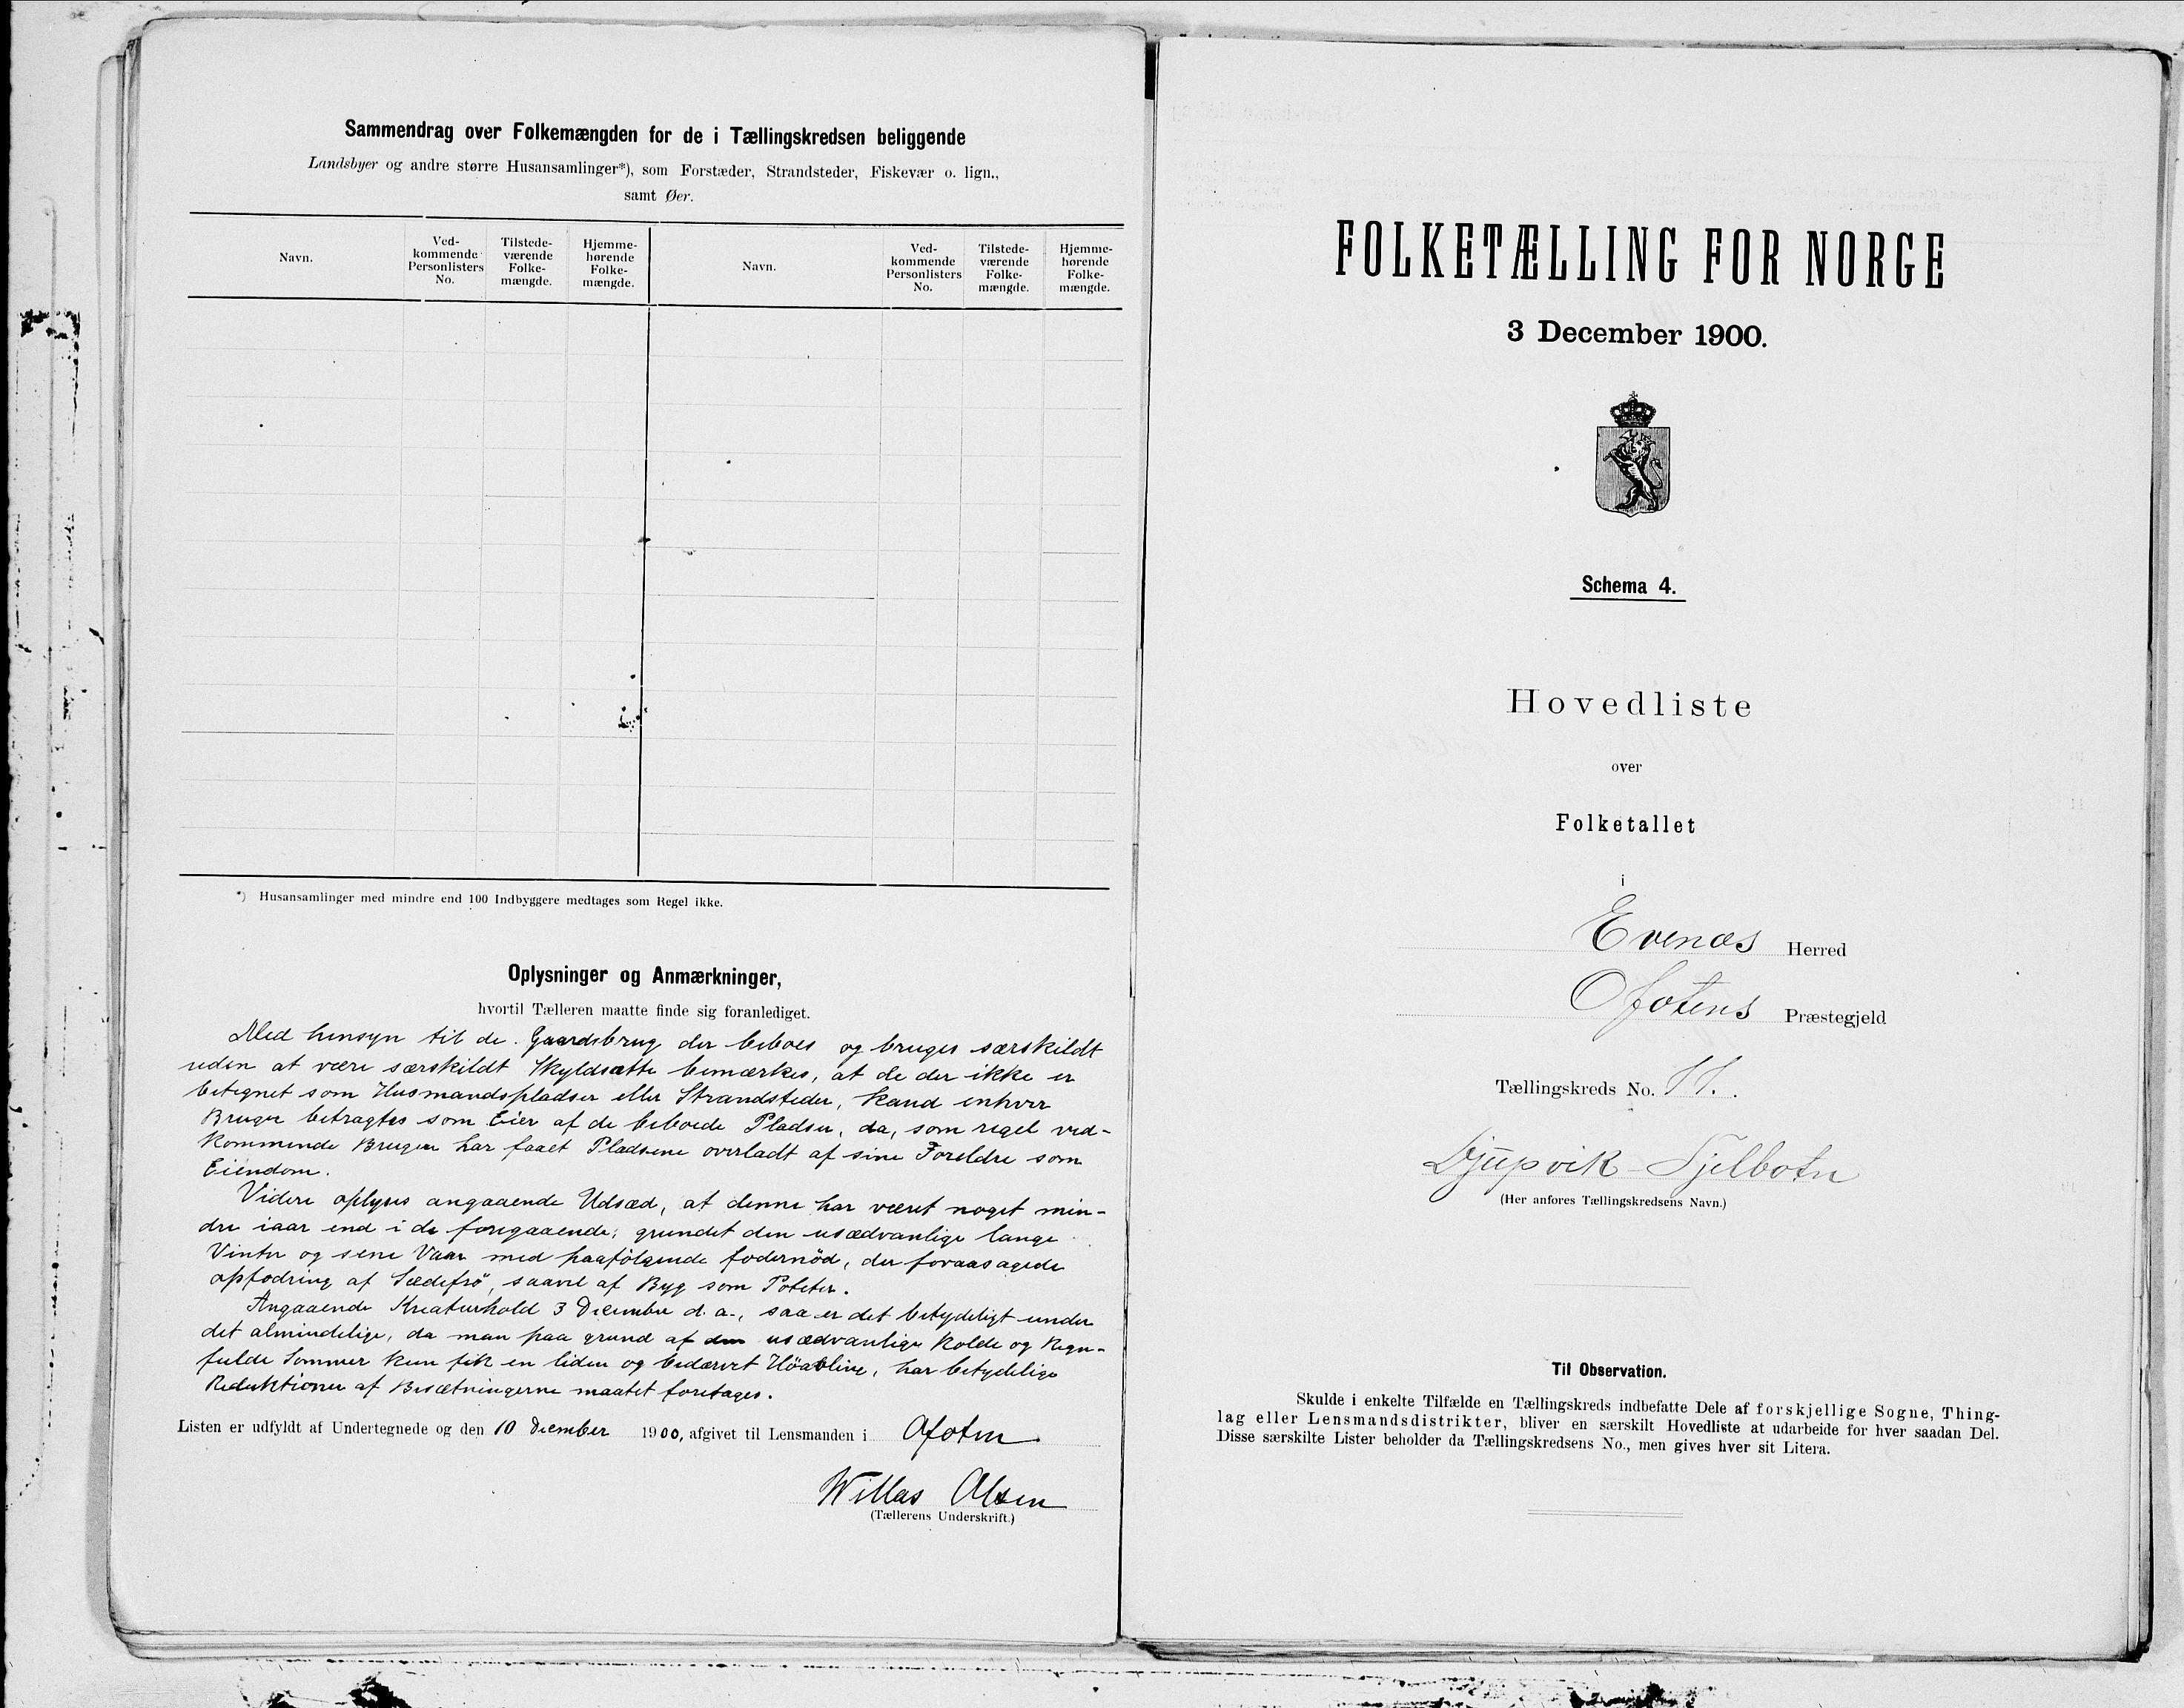 Sammendrag over Folkemængden for de i Tællingskredsen beliggende
Landsbyer og andre større Husansamlinger*), som Forstæder, Strandsteder, Fiskevær o. lign.,
samt Øer.
Navn.
Ved-
kommende
Personlisters
No.
Tilstede-
værende
Folke-
mængde.
Hjemme-
hørende
Folke-
mængde.
Navn.
Ved-
kommende
Personlisters
No.
Tilstede-
værende
Folke-
mængde.
Hjemme-
hørende
Folke-
mængde.
*) Husansamlinger med mindre end 100 Indbyggere medtages som Regel ikke.
Oplysninger og Anmærkninger,
hvortil Tælleren maatte finde sig foranlediget.
Med hensyn til de Gaardsbrug der beboes og bruges særskildt
uden at være særskildt Skyldsatte bemærkes, at de der ikke er
betegnet som Husmandspladser eller Strandsteder, kand enhver
Bruger betragtes som Eier af de beboede Pladser, da, som regel ved-
kommende Bruger har faaet Pladsene overladt af sine Foreldre som
Eiendom.
Videre oplyses angaaende Udsæd, at denne har været noget min-
dre iaar end i de foregaaende, grundet den usædvanlige lange
Vinter og sene Vaar med paafølgende fodernöd, der foraasagede
opfodring af Sædefrö, saavel af Byg som Poteter.
Angaaende Kreaturhold 3 December d. a., saa er det betydeligt under
det almindelige, da man paa grund af den usædvanlige kolde og Regn-
fulde Sommer kun fik en liden og bedærvet Höavling, har betydelige
Reduktioner af Besætningerne maatet foretages.
Listen er udfyldt af Undertegnede og den 10 December 1900, afgivet til Lensmanden i Ofoten
Willas Olsen
(Tællerens Underskrift.)
FOLKETÆLLING FOR NORGE
3 December 1900.
Schema 4.
Hovedliste
over
Folketallet
i
Evenæs Herred
Ofotens Præstegjeld
Tællingskreds No. 11.
Djupvik-Tjelbotn
(Her anføres Tællingskredsens Navn.)
Til Observation.
Skulde i enkelte Tilfælde en Tællingskreds indbefatte Dele af forskjellige Sogne, Thing-
lag eller Lensmandsdistrikter, bliver en særskilt Hovedliste at udarbeide for hver saadan Del.
Disse særskilte Lister beholder da Tællingskredsens No., men gives hver sit Litera.